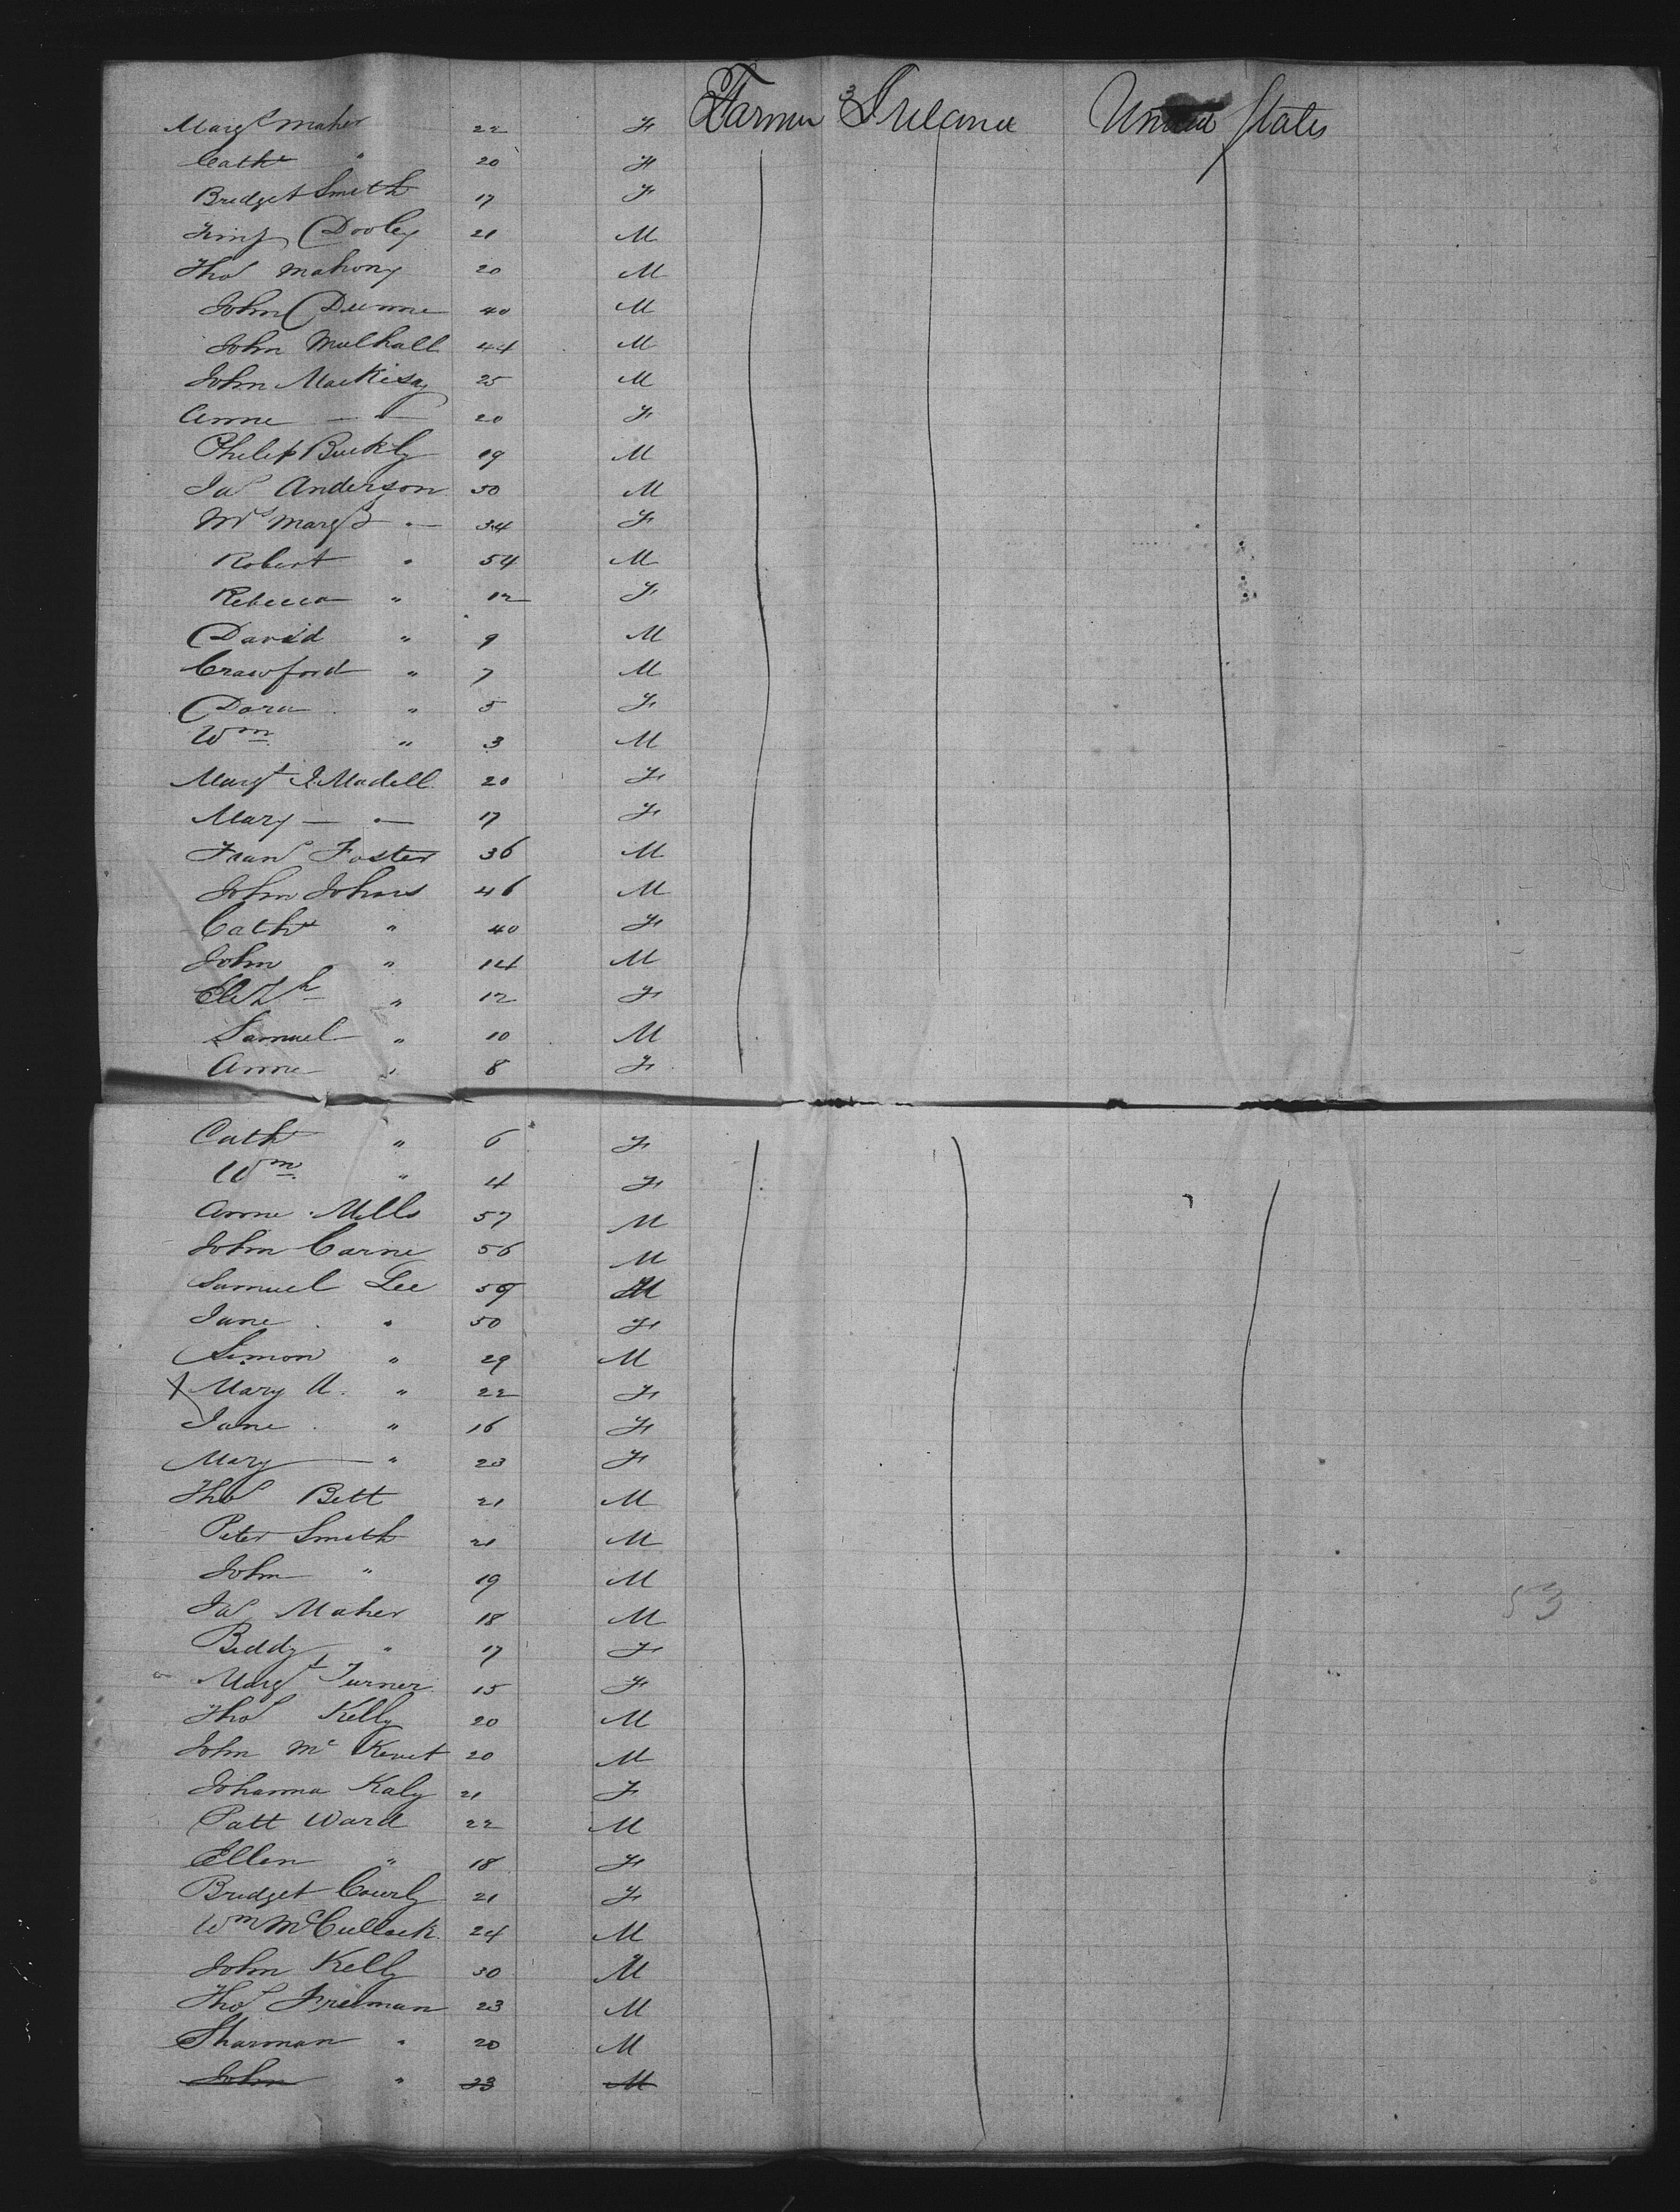 Margt Maher 22 F Farmer Ireland United States
Cathe " 20 F
Bridget Smith 17 F
Dooley 21 M
Thos Mahony 20 M
John Dunne 40 M
John Mulhall 44 M
John 25 M
Anne " 20 F
Philip Buckly 19 M
Jas Anderson 50 M
Mrs Margt " 34 F
Robert " 54 M
Rebecca " 12 F
David " 9 M
Crawford " 7 M
Dora " 5 F
Wm " 3 M
Margt J. Madell 20 F
Mary " 17 F
Frans Foster 36 M
John Johns 46 M
Cathe " 40 F
John " 14 M
Elizh " 12 F
Samuel " 10 M
Anne " 8 F
Cath " 6 F
Wm " 4 F
Anne Mills 57 M
John Carne 56 M
Samuel Lee 59 M
Jane " 50 F
Simon " 29 M
X Mary A. " 22 F
Jane " 16 F
Mary " 23 F
Thos Bett 21 M
Peter Smith 21 M
John " 19 M
53
Jas Maher 18 M
Biddy " 17 F
Margt Turner 15 F
Thos Kelly 20 M
John Mc 20 M
Johanna Kaly 21 F
Patt Ward 22 M
Ellen " 18 F
Bridget Courly 21 F
Wm McCullock 24 M
John Kelly 30 M
Thos Freeman 23 M
Sharman " 20 M
John " 23 M